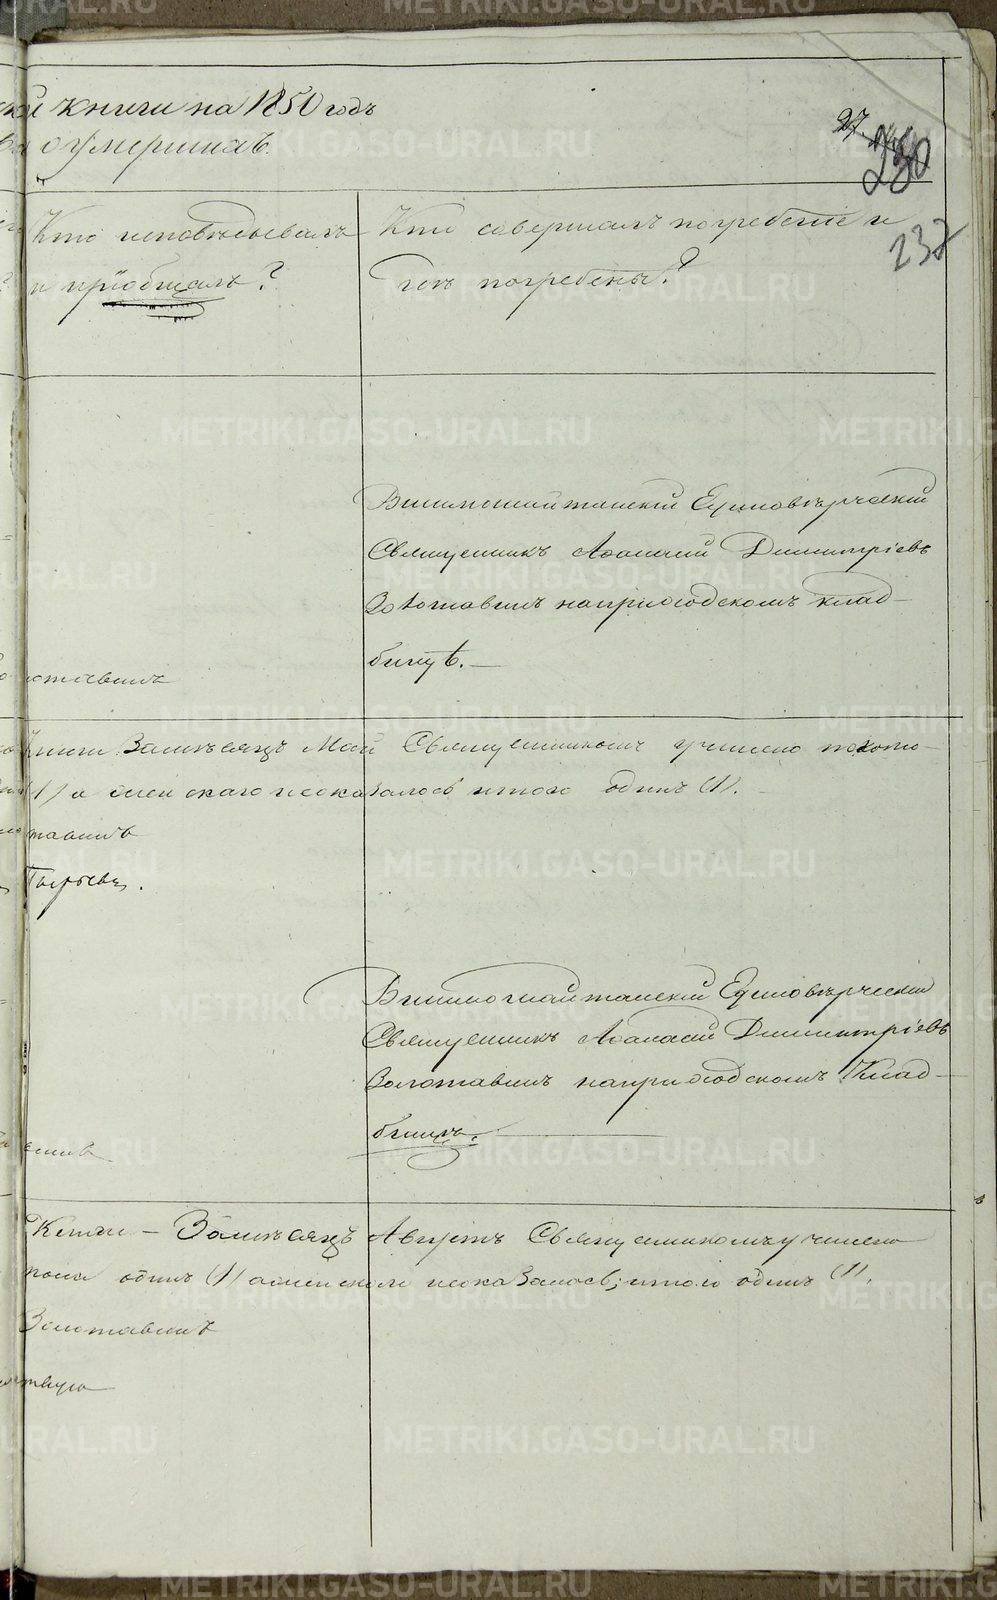 кой книги на 1850 годъ
о умершихъ
27.
230
237
Кто исповѣдывалъ
и пріобщалъ?
Кто совершалъ погребеніе и
гдѣ погребены?
Билимбошайтанскій Единовѣрческій
Священникъ Афанасій Димитріевъ
Золотавинъ на приходскомъ клад-
бищѣ.
отавинъ
книги За мѣсяцъ Май Священникомъ учинено
(1) а женскаго неоказалось итого одинъ (1).
тавинъ
Билимбошайтанскій Единовѣрческій
Священникъ Афанасій Димитріевъ
Золотавинъ на приходскомъ Клад-
бищѣ.
Книги – За мѣсяцъ Августъ Священникомъ учинено
пола одинъ (1) а женскаго неоказалось; итого одинъ (1).
Золотавинъ
METRIKI.GASO-URAL.RU